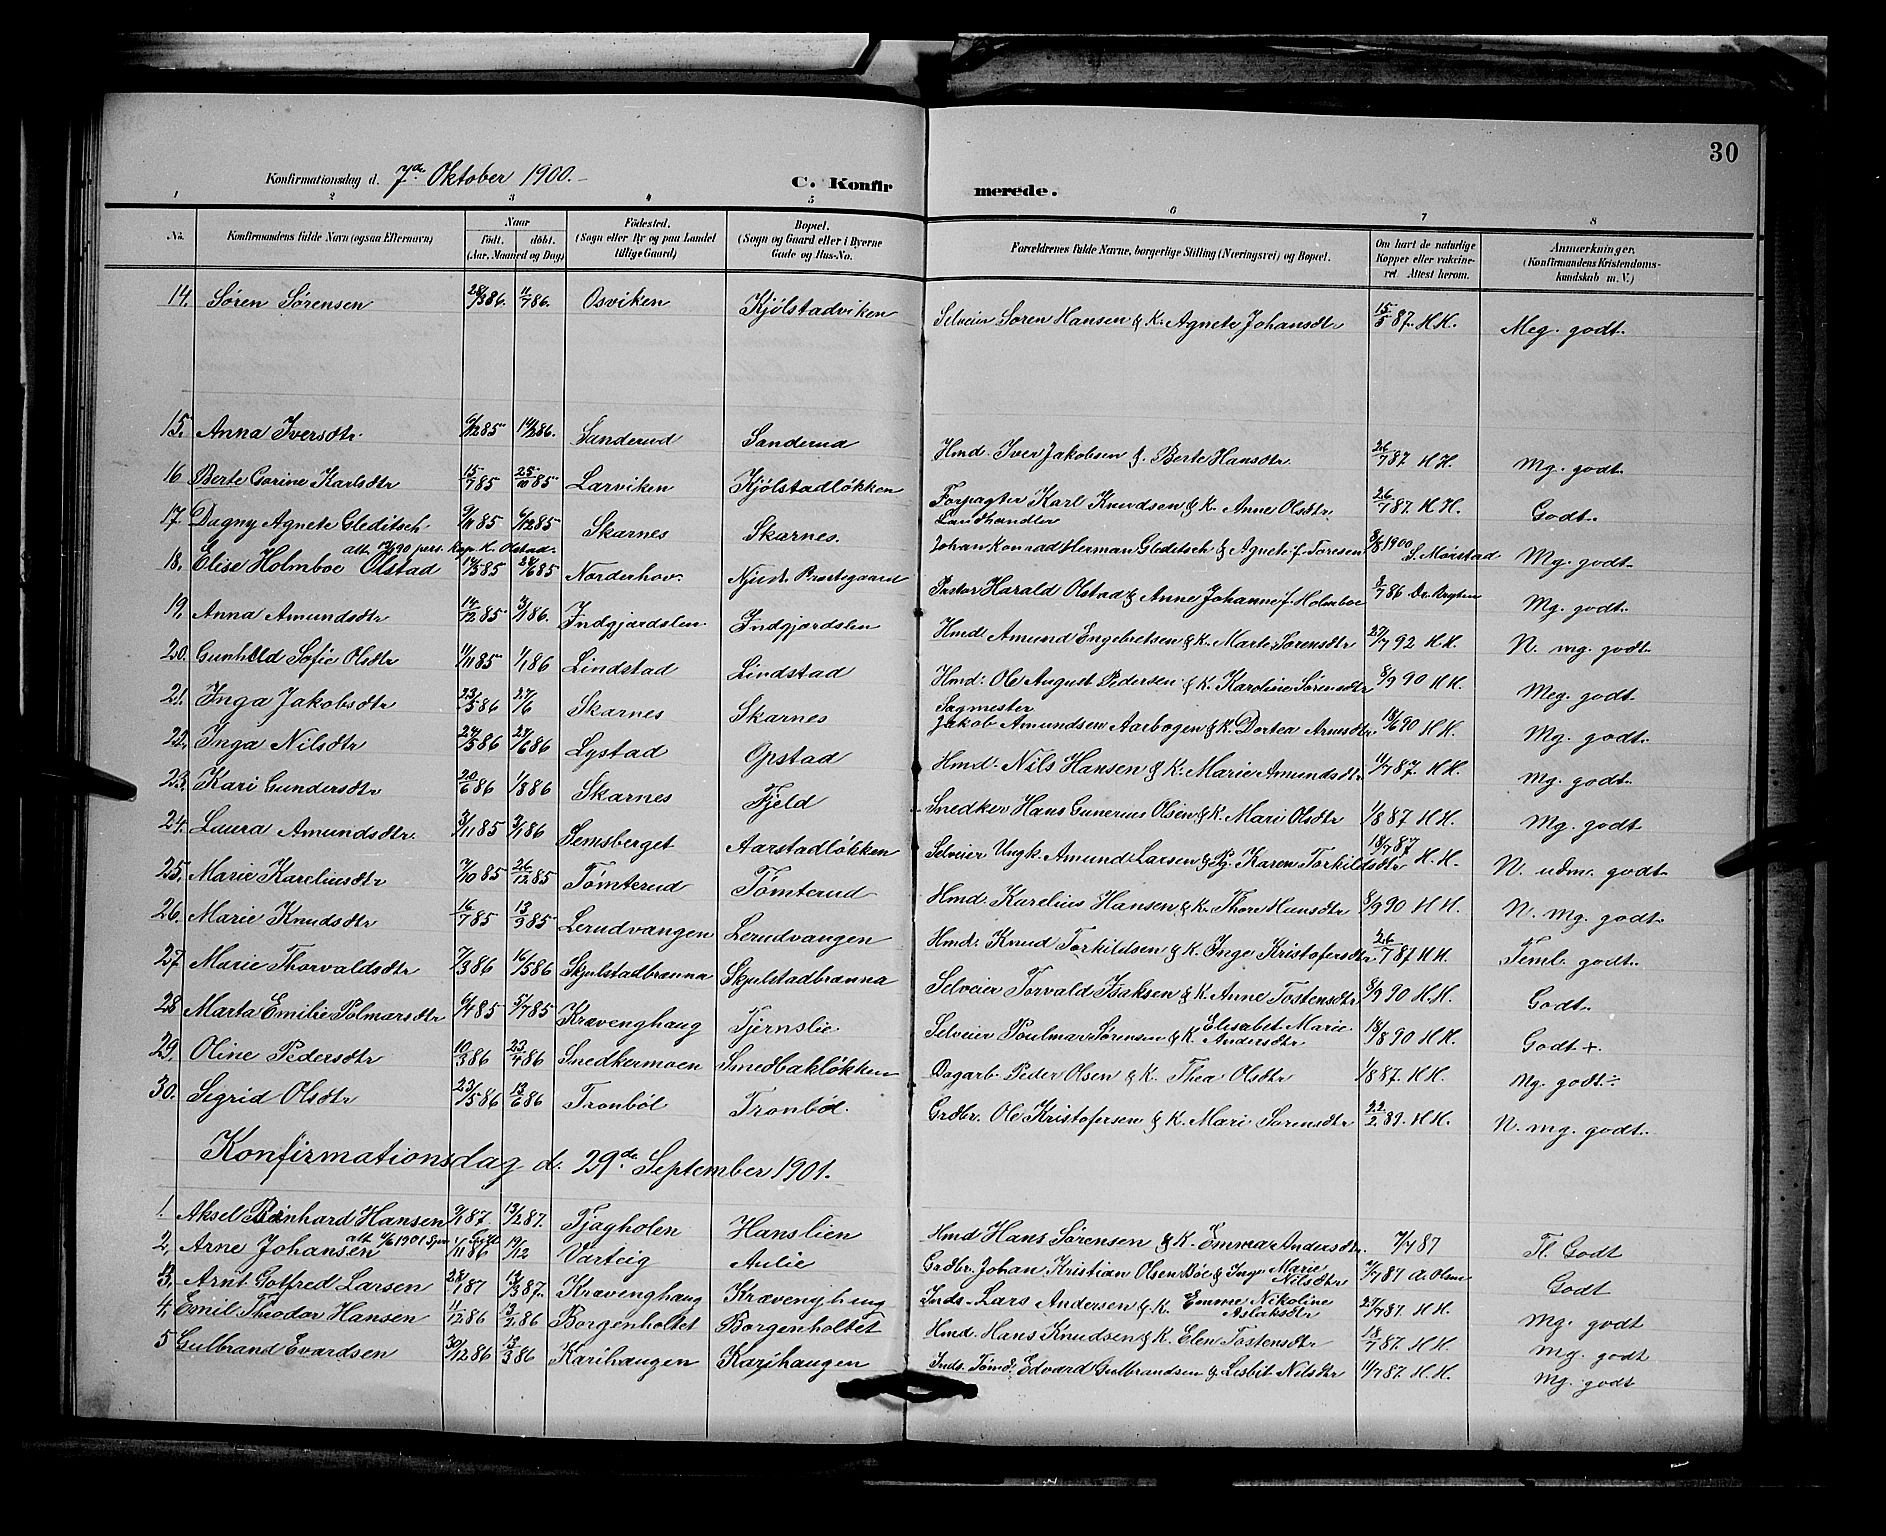 30
Konfirmationsdag d. 7de Oktober 1900.
C. Konfirmerede.
1 2 3 4 5 6 7 8
No. Konfirmandens fulde Navn (ogsaa Efternavn) Naar Født. døbt. (Aar, Maaned og Dag) Fødested. (Sogn eller By og paa Landet tillige Gaard) Bopæl. (Sogn og Gaard eller i Byerne Gade og Hus-No. Forældrenes fulde Navne, borgerlige Stilling (Næringsvei) og Bopæl. Om havt de naturlige Kopper eller vaccineret. Attest herom. Anmærkninger. (Konfirmandens Kristendomskundskab m. V.)
14. Søren Sørensen 28/3 86. 11/7 86. Osviken Kjølstadviken Selveier Søren Hansen & K. Agnete Johansdtr 15/5 87. H.H. Meg. godt.
15. Anna Iversdtr. 6/12 85 14/2 86. Sanderud Sanderud Hmd. Iver Jakobsen & Berte Hansdtr. 26/7 87 H.H. Mg. godt.
16 Berte Gorine Karlsdtr 15/7 85 25/10 85 Larviken Kjølstadløkken Forpagter Karl Knudsen & K. Anne Olsdtr 26/7 87. H.H. Godt.
17. Dagny Agnete Gleditsch 9/11 85 6/12 85 Skarnes Skarnes. Landhandler Johan Konrad Herman Gleditsch & Agnete f. Foresen 3/8 1900 S. Mørstad Mg. godt.
18. Elise Holmboe Olstad 14/5 85 24/6 85 Norderhov. Prestegaard Pastor Harald Olstad & Anne Johanne f. Holmboe 3/7 86 Mg. godt.
19. Anna Amundsdtr 14/12 85 3/1 86. Indgjordslen Indgjordslen Hmd. Amund Engebretsen & K. Marte Sørensdtr 27/7 92 H.H. N. mg. godt.
20. Gunhild Sofie Olsdtr 11/11 85 1/1 86 Lindstad Lindstad Hmd. Ole August Pedersen & K. Karoline Sørensdtr 8/9 90 H.H. Meg. godt
21. Inga Jakobsdtr 23/5 86 27/6 Skarnes Skarnes Sagmester Jakob Amundsen Aarbogen & K. Dortea Arnesdtr. 18/6 90 H.H. Mg. godt.
22. Inga Nilsdtr 24/5 86 27/6 86 Lystad Opstad Hmd. Nils Hansen & K. Marie Amundsdtr 11/7 87. H.H. Mg. godt.
23. Kari Gundersdtr 20/6 86 1/8 86 Skarnes Fjeld Snedker Hans Gunerius Olsen & K. Mari Olsdtr 1/8 87 H.H. Mg. godt
24. Laura Amundsdtr. 3/11 85 3/1 86 Semsberget Aarstadløkken Selveier Ungk. Amund Larsen & Pg. Karen Torkildsdtr 18/7 87 H.H. N. udm. godt.
25. Marie Kareliusdtr 7/10 85 26/12 85 Tømterud Tømterud Hmd. Karelius Hansen & K. Thon Hansdtr 8/9 90 H.H. N. mg. godt.
26. Marie Knudsdtr 16/7 85 13/9 85 Lerudvangen Lerudvangen Hmd. Knud Torkildsen & K. Inge Kristofersdtr. 26/7 87 H.H. Teml. godt.
27. Marie Thorvaldsdtr 7/3 86 16/5 86 Skjulstadbrænna Skjulstadbrænna Selveier Torvald Isaksen & K. Anne Tostensdtr 8/9 90 H.H. Godt.
28 Marta Emilie Polmarsdtr 6/4 85 5/7 85 Kravenghaug Tjernslie. Selveier Poulmar Sørensen & K. Elisabet Marie Andersdtr 18/8 90 H.H. Godt +.
29. Oline Pedersdtr 10/3 86 23/4 86 Snedkermoen Smedbakløkken Dagarb. Peder Olsen & K. Thea Olsdtr 1/8 87. H.H. Mg. godt ÷
30. Sigrid Olsdtr 23/5 86 13/6 86 Tronbøl Tronbøl. Grdbr. Ole Kristofersen & K. Mari Sørensdtr 22/2 89. H.H. N. mg. godt.
Konfirmationsdag d. 29de September 1901.
1. Aksel Hansen 9/1 87. 13/2 87. Tjagholen Hanslien Hmd Hans Sørensen & K. Emma Andersdtr. 7/7 87 Tl. Godt
2. Arne Johansen 1/11 86 19/12 Varteig Aulie Grdbr. Johan Kristian Olsen Bøe & Inge Marie Nilsdtr 7/7 87 A. Olsen Godt
3. Arnt Gotfred Larsen 28/1 87 13/3 87. Kravenghaug Kravenghaug Inds. Lars Andersen & K. Emme Nikoline Aslaksdtr 27/7 87. H.H. Mg. godt
4. Emil Theodor Hansen 11/12 86 13/2 86 Borgenholtet Borgenholtet Hmd. Hans Knudsen & K. Elen Tostensdtr 18/7 87. H.H. Mg. godt
5 Gulbrand Evardsen 30/12 86 13/3 86 Karihaugen Karihaugen Inds. Tømd. Edvard Gulbrandsen & Lisbet Nilsdtr 11/7 87. H.H. Mg. godt